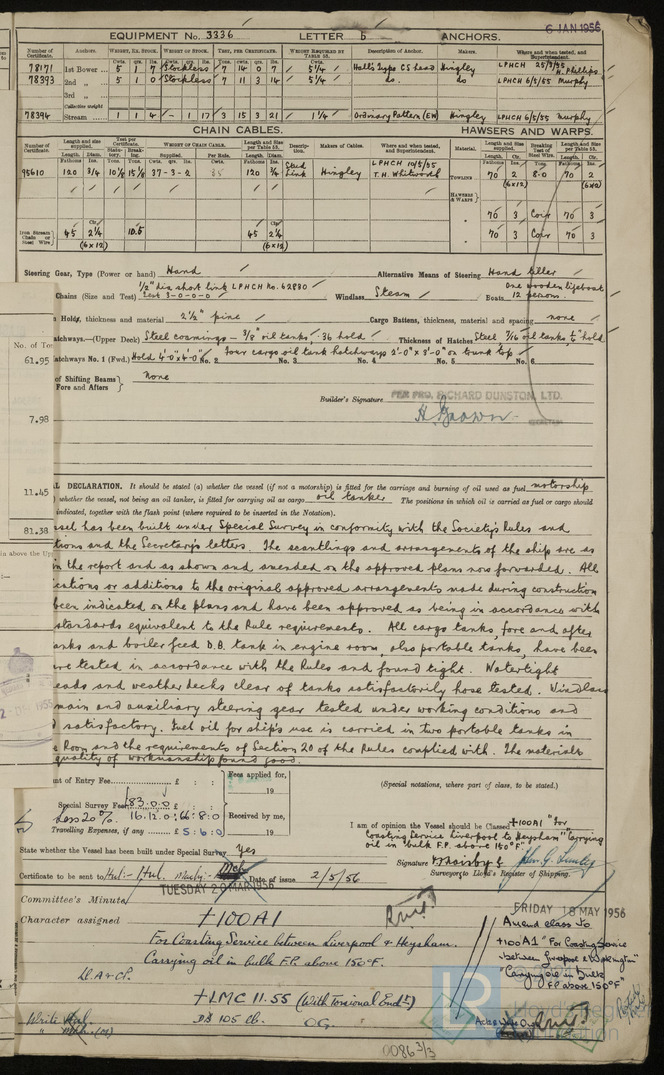 6 JAN 1956
EQUIPMENT No. 3336 LETTER b ANCHORS.
Number of Certificate. Anchors. WEIGHT, EX. STOCK. WEIGHT OF STOCK. TEST, PER CERTIFICATE. WEIGHT REQUIRED BY TABLE 53. Description of Anchor. Makers. Where and when tested, and Superintendent.
78171 1st Bower 5 1 7 Stockless 7 14 0 7 5 1/4 Hall's Type CS head Hingley LPHCH 25/3/55 H. Phillips
78393 2nd " 5 1 0 Stockless 7 11 3 14 5 1/4 do. do LPHCH 6/5/55 Murphy
3rd "
Collective weight
78394 Stream 1 1 4 - 1 17 3 15 3 21 1 1/4 Ordinary Pattern (EW) Hingley LPHCH 6/5/55 Murphy
CHAIN CABLES. HAWSERS AND WARPS.
Number of Certificate. Length and size supplied. Test per Certificate. WEIGHT OF CHAIN CABLE. Length and Size per Table 53. Description. Makers of Cables. Where and when tested, and Superintendent. Material. Length and Size supplied. Breaking Test of Steel Wire. Length and Size per Table 53.
95610 120 3/4 10 1/8 15 1/8 37-3-2 120 3/4 Stud Link Hingley LPHCH 10/5/55 T.H. Whitworth TOWLINE 70 2 (6x12) 8.0 70 2 (6x12)
HAWSERS & WARPS
70 3 Coir 70 3
" 70 3 Coir 70 3
Iron Stream Chain or Steel Wire 45 2 1/4 (6x12) 10.5 45 2 1/4 (6x12)
Steering Gear, Type (Power or hand) Hand Alternative Means of Steering Hand tiller
Chains (Size and Test) 1/2" dia short link LPHCH No. 62880 Test 3-0-0-0 Windlass Steam Boats One wooden lifeboat 12 persons.
Hold, thickness and material 2 1/2" pine Cargo Battens, thickness, material and spacing none
atchways.-(Upper Deck) Steel coamings - 3/8" oil tanks, .36 hold Thickness of Hatches Steel 7/16 oil tanks, 1/4" hold
atchways No. 1 (Fwd.) Hold 4'-0"x4'-0" No. 2 Four cargo oil tank hatchways 2'-0" x 3'-0" on trunk top No. 3 No. 4 No. 5 No. 6
of Shifting Beams Fore and Afters } None
Builder's Signature PER PRO. RICHARD DUNSTON, LTD.
H Brown
SECRETARY
No. of Ton
61.95
7.98
11.45
81.38
in above the Upp
L DECLARATION. It should be stated (a) whether the vessel (if not a motorship) is fitted for the carriage and burning of oil used as fuel motorship
whether the vessel, not being an oil tanker, is fitted for carrying oil as cargo oil tanker The positions in which oil is carried as fuel or cargo should
indicated, together with the flash point (where required to be inserted in the Notation).
ssel has been built under Special Survey in conformity with the Society's Rules and
tions and the Secretary's letters. The scantlings and arrangements of the ship are as
in the report and as shown and amended on the approved plans now forwarded. All
cations or additions to the original approved arrangements made during construction
been indicated on the plans and have been approved as being in accordance with
standards equivalent to the Rule requirements. All cargo tanks, fore and after
anks and boiler feed D.B. tank in engine room, also portable tanks, have been
re tested in accordance with the Rules and found tight. Watertight
eads and weather decks clear of tanks satisfactorily hose tested. Windlass
main and auxiliary steering gear tested under working conditions and
d satisfactory. Fuel oil for ship's use is carried in two portable tanks in
e Room and the requirements of Section 20 of the Rules complied with. The materials
quality of workmanship found good.
nt of Entry Fee £ : : Fees applied for, 19
Special Survey Fee £83.0.0
Less 20% 16.12.0 : 66:8:0 Received by me,
Travelling Expenses, if any £5:6:0 19
(Special notations, where part of class, to be stated.)
I am of opinion the Vessel should be Classed +100A1 "For Coasting Service Liverpool to Heysham" "Carrying oil in bulk F.P. above 150°F."
State whether the Vessel has been built under Special Survey Yes
Signature
Surveyor to Lloyd's Register of Shipping.
Certificate to be sent to Hull Date of issue 2/5/56
TUESDAY 20 MAR 1956
Committee's Minute
Character assigned +100A1
For Coasting Service between Liverpool & Heysham.
Carrying oil in bulk F.P. above 150°F.
Ll. A & CP.
+LMC 11.55 (With Torsional End.t)
DB 105 lb. OG.
FRIDAY 18 MAY 1956
Amend class to
+100A1 "For Coasting Service
between Liverpool & Workington"
"Carrying oil in bulk
F.P. above 150°F"
Write Hul.
0086 3/3